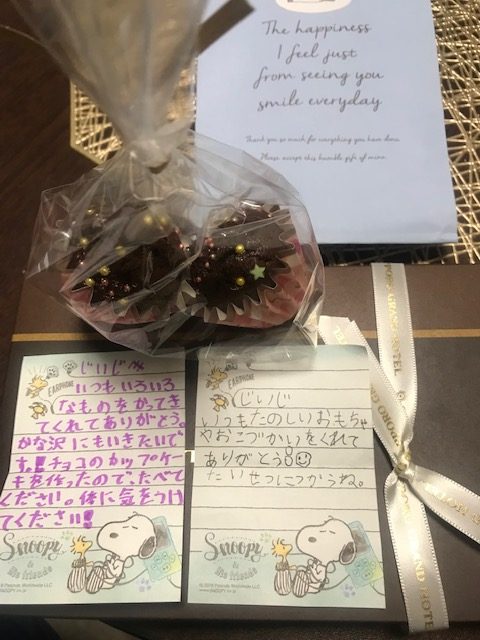 The happiness
I feel just
from seeing you
smile everyday
Thank you so much for everything you have done.
Please accept this humble gift of mine.
EARPHONE
じいじへ
いつもいろいろ
なものをかってき
てくれてありがとう。
かな沢にもいきたいで
す!チョコのカップケー
キを作ったので、たべて
ください。体に気をつけ
てください!
Snoopy
& His friends
EARPHONE
じいじ
いつもたのしいおもちゃ
やおこづかいをくれて
ありがとう!
たいせつにつかうね。
Snoopy
& His friends
SAPPORO GRAND HOTEL
GRAND HOTEL